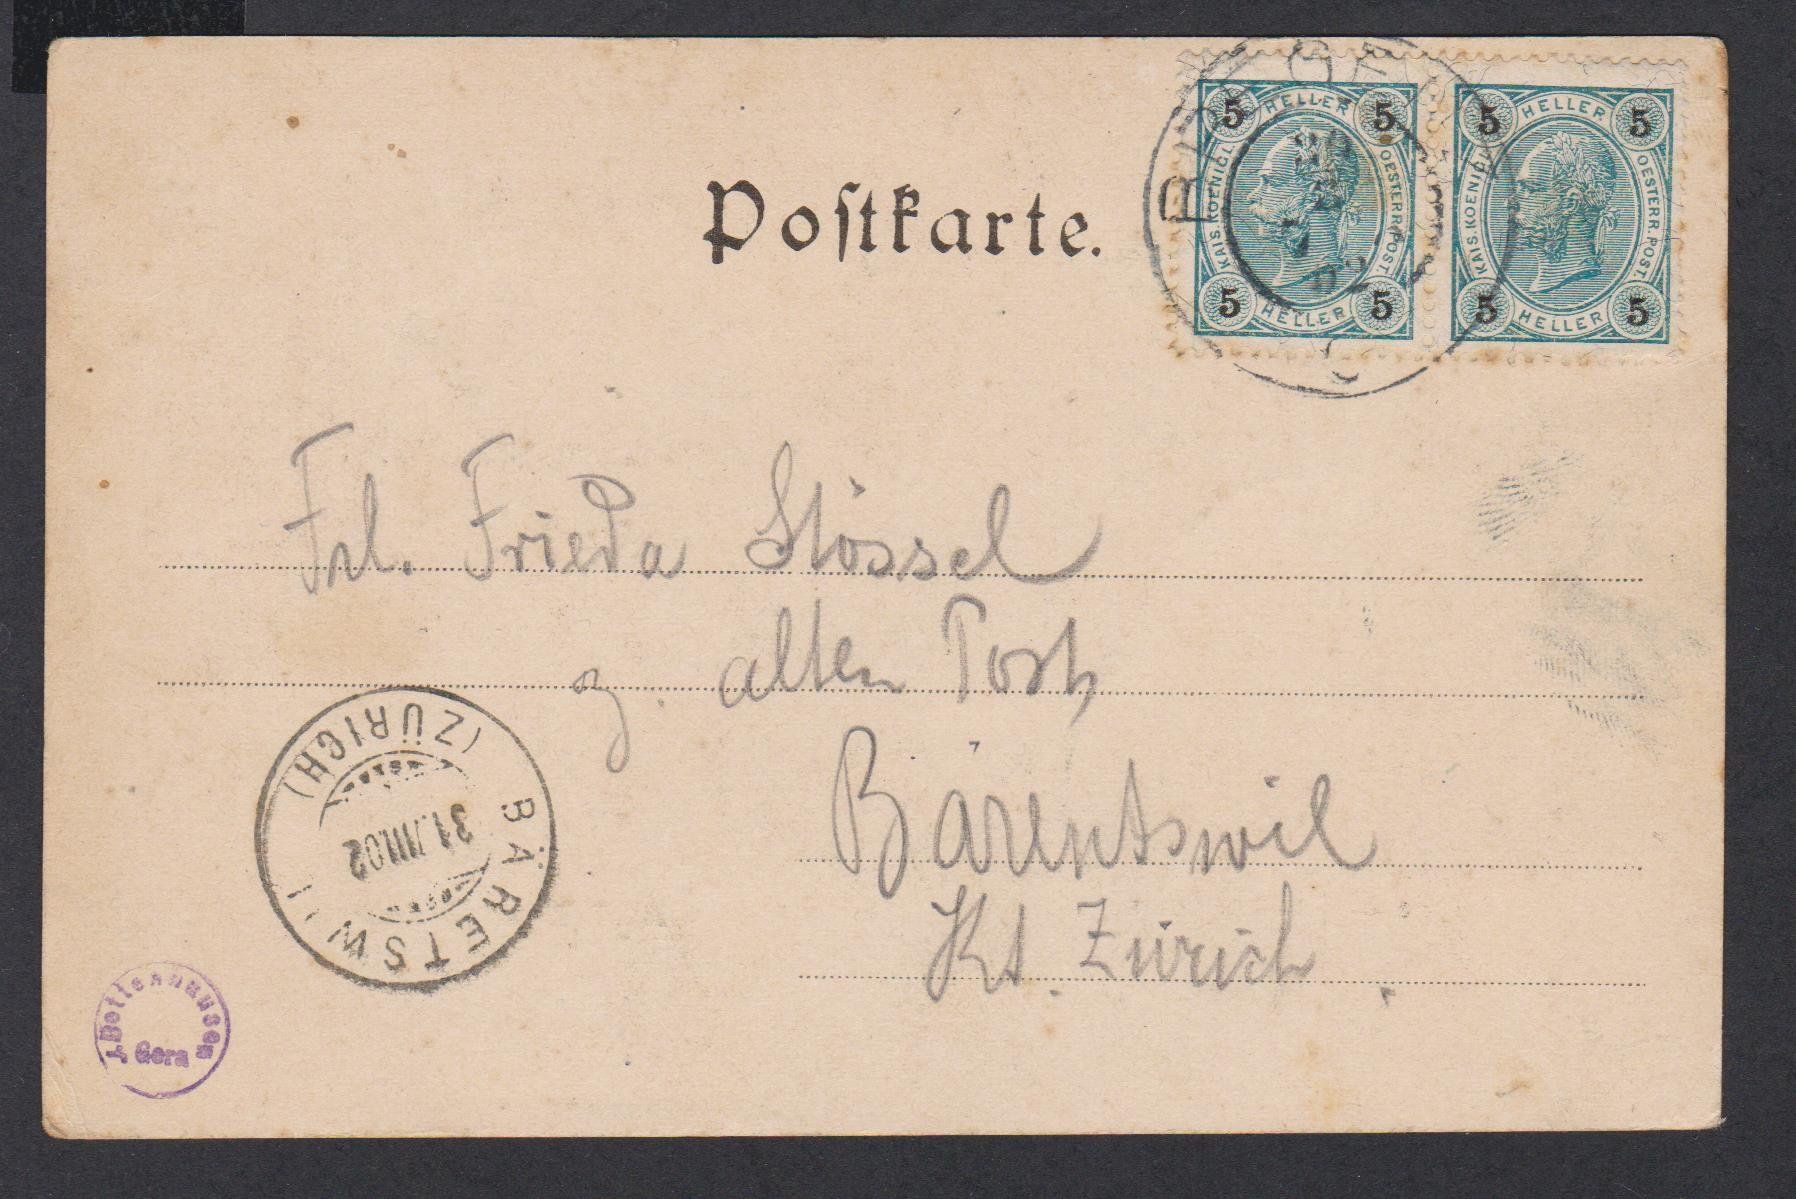 Postkarte.
5 HELLER 5
KAIS. KOENIGL. OESTERR. POST.
5 HELLER 5
5 HELLER 5
KAIS. KOENIGL. OESTERR. POST.
5 HELLER 5
02
Frl. Frieda Stössel
z. alten Post
Bärentswil
Kt. Zürich.
BÄRETSWIL
(ZÜRICH)
31.VIII.02
Gera